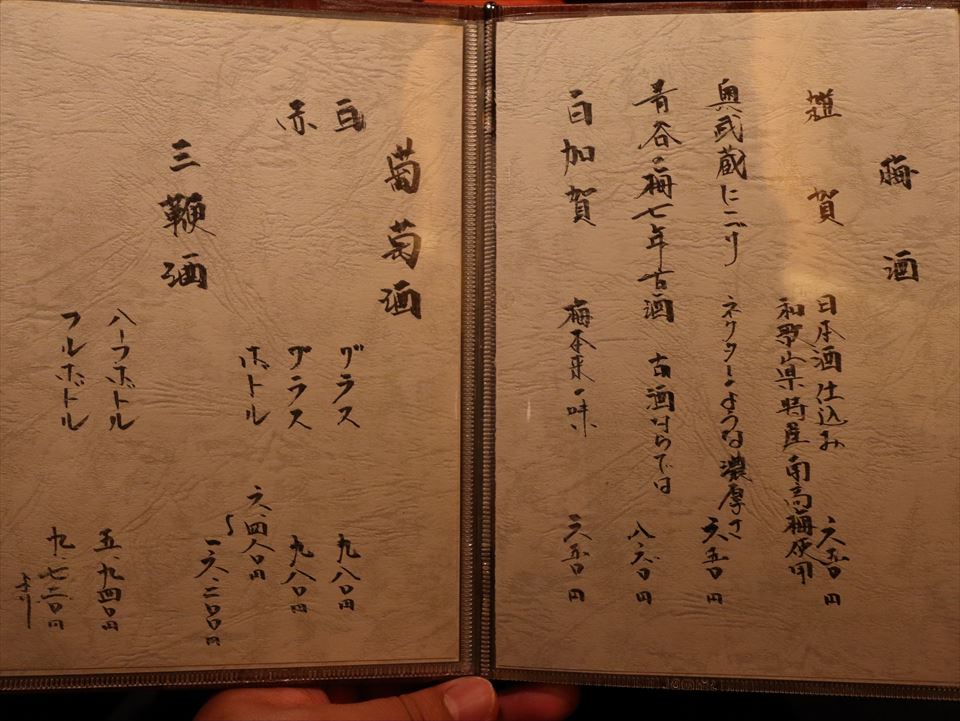 梅酒
雑賀 日本酒仕込み 六五〇円
和歌山県特産南高梅使用
奥武蔵にごり ネクターのような濃厚さ 六五〇円
青谷の梅七年古酒 古酒ならでは 八六〇円
白加賀 梅本来の味 六五〇円
葡萄酒
白 グラス 九八〇円
赤 グラス 九八〇円
ボトル 六、四八〇円
〜一六、二〇〇円
三鞭酒
ハーフボトル 五、九四〇円
フルボトル 九、七二〇円
より